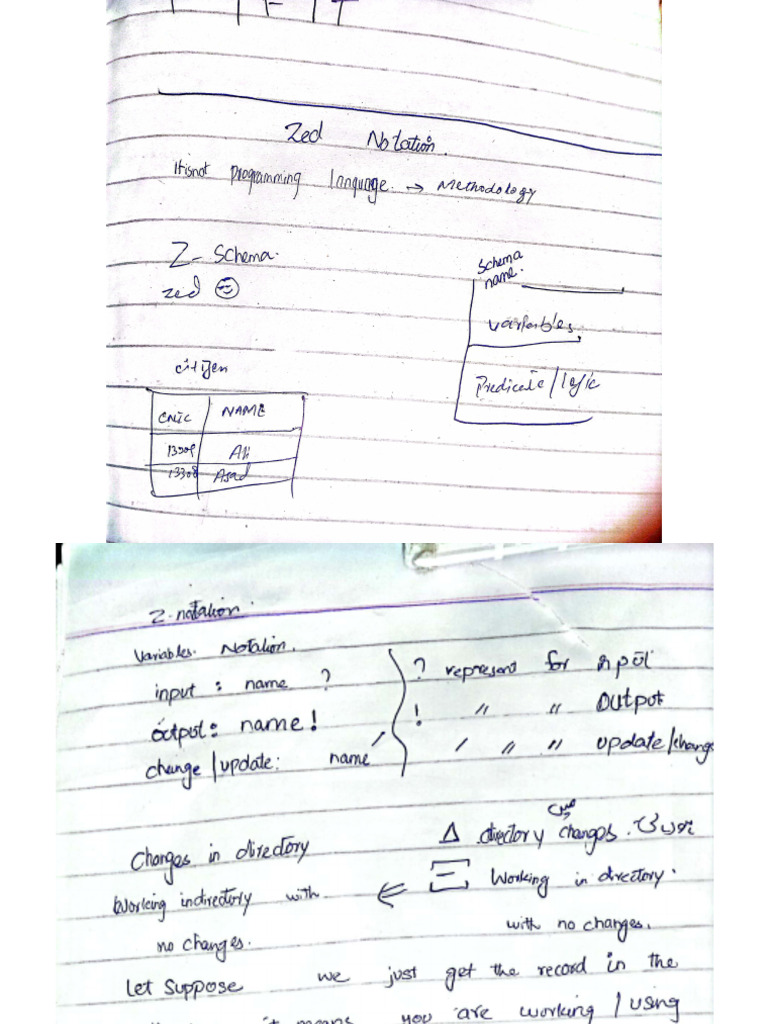 Zed Notation.
It is not programming language → Methodology
Z- Schema.
zed
Schema name.
variables
Predicate/logic
citizen
CNIC NAME
Ali
13308 Asad
Z-notation.
Variables. Notation.
input : name ?
? represent for input
output : name !
! " " output
change / update: name '
' " " update/change
Changes in directory
Δ directory میں changes.
Working indirectory with no changes.
Ξ Working in directory.
with no changes.
Let Suppose we just get the record in the
it means you are working / using